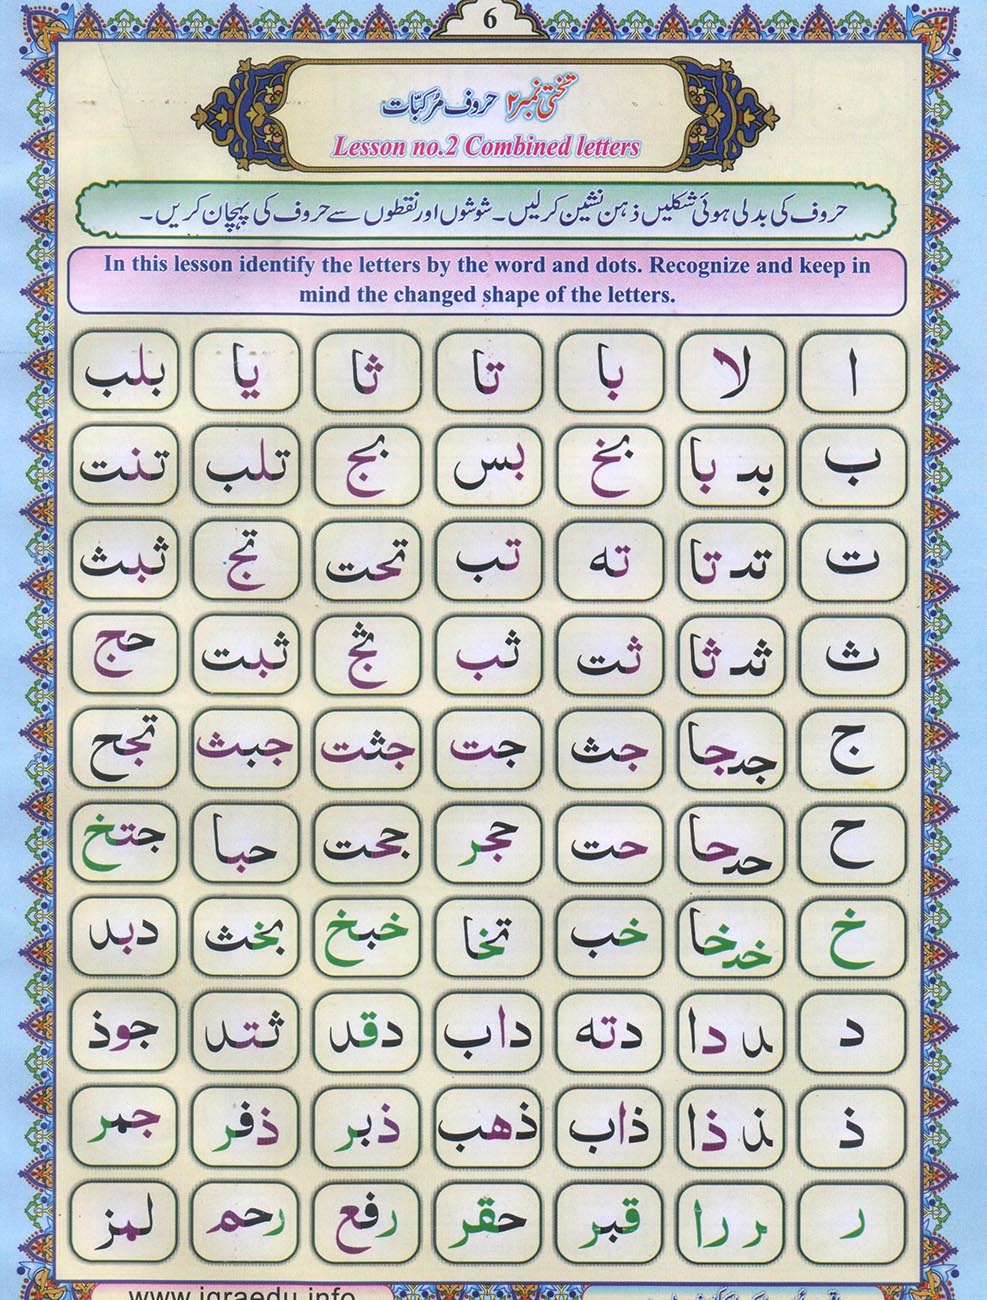 6
تختی نمبر ۲ حروف مرکبّات
Lesson no.2 Combined letters
حروف کی بدلی ہوئی شکلیں ذہن نشین کرلیں۔ شوشوں اور نقطوں سے حروف کی پہچان کریں۔
In this lesson identify the letters by the word and dots. Recognize and keep in
mind the changed shape of the letters.
ا لا با تا ثا یا بلب
ب بد با بخ بس بج تلب تنت
ت تد تا ته تب تحت تج ثبث
ث ثد ثا ثت ثب ثج ثبت حج
ج جد جا جث جت جثت جبث تجح
ح حد حا حت حجر جحت حبا جتخ
خ خد خا خب تخا خبخ بخث دبد
د ـد دا دته داب دقد ثتد جوذ
ذ ـذ ذا ذاب ذهب ذبر ذفر جمر
ر ـر را قبر حقر رفع رحم لمز
www.iqraedu.info